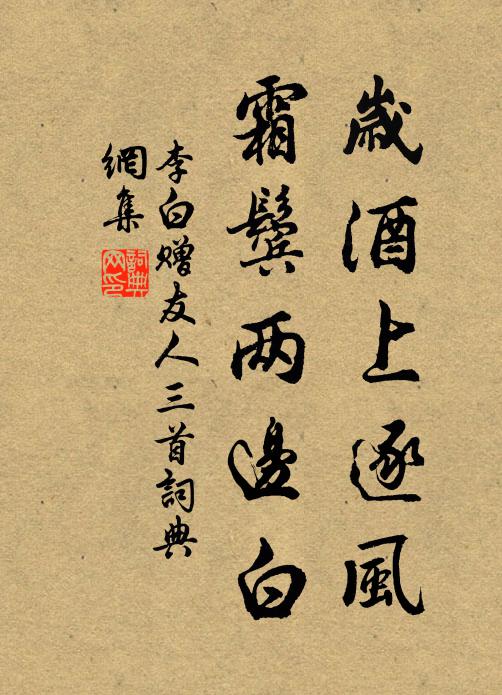 歲酒上逐風
霜鬢两邊白
李白贈友人三首詞典
網集
詞典
网印